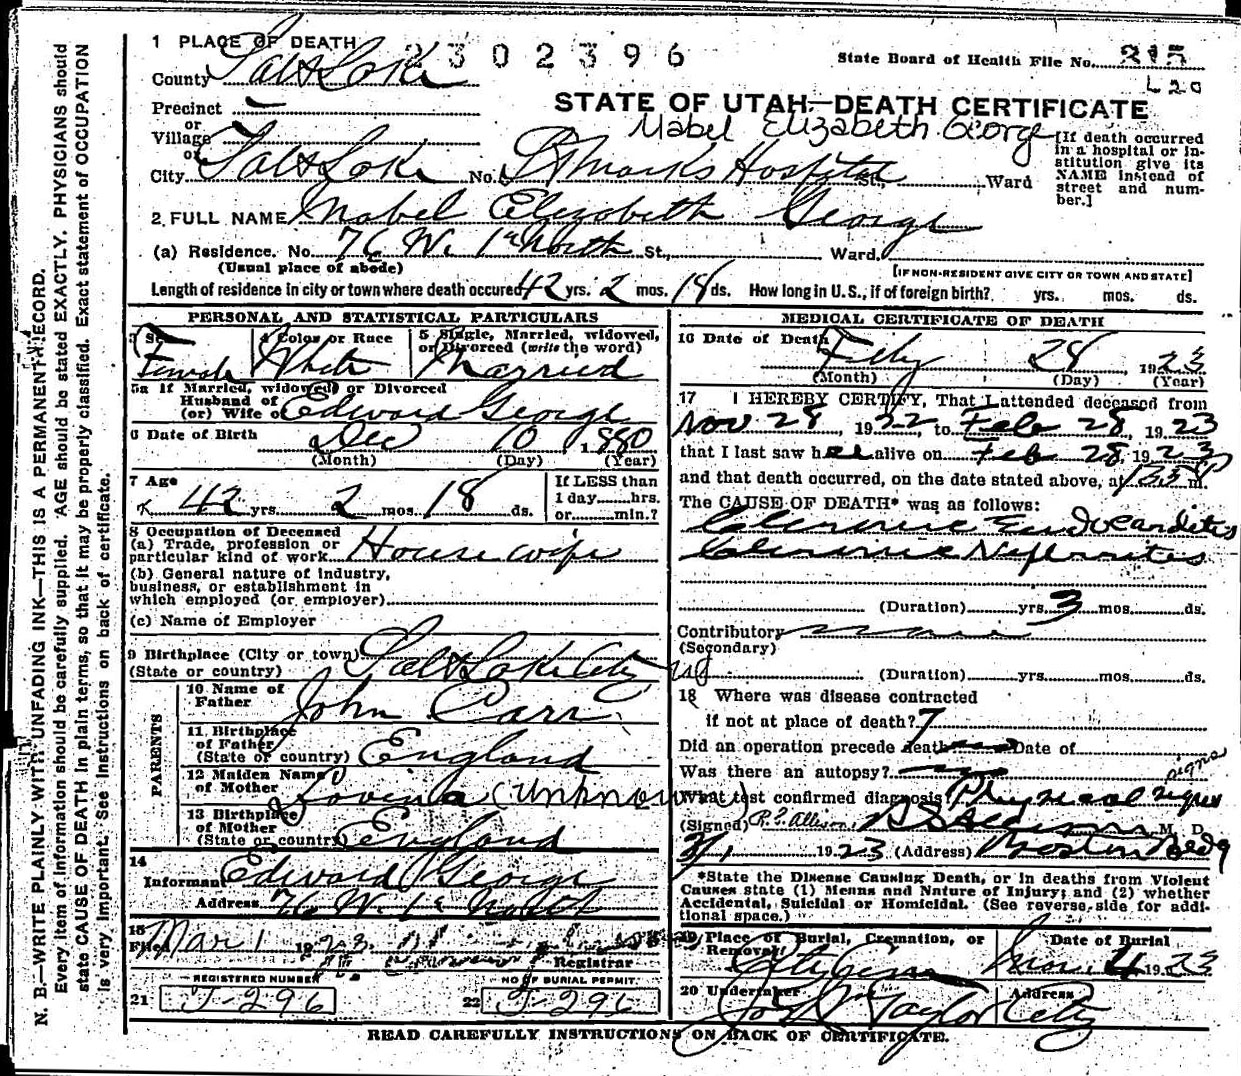 1 PLACE OF DEATH
2302396
State Board of Health File No. 315
County Salt Lake
L20
Precinct
STATE OF UTAH—DEATH CERTIFICATE
or
Village
Mabel Elizabeth George
or
City Salt Lake No. St Marks Hospital St., Ward
[If death occurred in a hospital or institution give its NAME instead of street and number.]
2 FULL NAME Mabel Elizabeth George
(a) Residence. No. 76 W. 1st North St., Ward.
(Usual place of abode)
[IF NON-RESIDENT GIVE CITY OR TOWN AND STATE]
Length of residence in city or town where death occured 42 yrs. 2 mos. 18 ds. How long in U. S., if of foreign birth? yrs. mos. ds.
PERSONAL AND STATISTICAL PARTICULARS
3 Sex Female
4 Color or Race White
5 Single, Married, widowed, or Divorced (write the word) Married
5a If Married, widowed or Divorced
Husband of
(or) Wife of Edward George
6 Date of Birth Dec 10 1880
(Month) (Day) (Year)
7 Age 42 yrs. 2 mos. 18 ds.
If LESS than
1 day hrs.
or min.?
8 Occupation of Deceased
(a) Trade, profession or
particular kind of work House wife
(b) General nature of Industry,
business, or establishment in
which employed (or employer)
(c) Name of Employer
9 Birthplace (City or town) Salt Lake City
(State or country)
PARENTS
10 Name of
Father John Carr
11 Birthplace
of Father
(State or country) England
12 Maiden Name
of Mother Lovina (Unknown)
13 Birthplace
of Mother
(State or country) England
14
Informant Edward George
Address 76 W. 1st North
15
Filed Mar 1 1923
Registrar
REGISTERED NUMBER
21 J-296
NO OF BURIAL PERMIT
22 J-296
MEDICAL CERTIFICATE OF DEATH
16 Date of Death Feby 28, 1923
(Month) (Day) (Year)
17 I HEREBY CERTIFY, That I attended deceased from
Nov 28, 1922, to Feb 28, 1923
that I last saw her alive on Feb 28, 1923
and that death occurred, on the date stated above, at m.
The CAUSE OF DEATH* was as follows:
Chronic Endocarditis
Chronic Nephritis
(Duration) yrs. 3 mos. ds.
Contributory
(Secondary)
(Duration) yrs. mos. ds.
18 Where was disease contracted
if not at place of death? ?
Did an operation precede death Date of
Was there an autopsy? no
signs
What test confirmed diagnosis? Physical signs
(Signed) M. D.
3/1 1923 (Address) Boston Bldg
*State the Disease Causing Death, or in deaths from Violent
Causes state (1) Means and Nature of Injury; and (2) whether
Accidental, Suicidal or Homicidal. (See reverse side for addi-
tional space.)
19 Place of Burial, Cremation, or
Removal City Cem
Date of Burial
Mar. 4 1923
20 Undertaker Taylor
Address City
READ CAREFULLY INSTRUCTIONS ON BACK OF CERTIFICATE.
N. B.—WRITE PLAINLY WITH UNFADING INK—THIS IS A PERMANENT RECORD.
Every item of information should be carefully supplied. AGE should be stated EXACTLY. PHYSICIANS should
state CAUSE OF DEATH in plain terms, so that it may be properly classified. Exact statement of OCCUPATION
is very important. See Instructions on back of certificate.